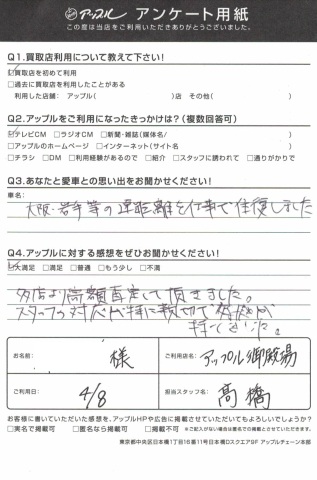 アップル アンケート用紙
この度は当店をご利用いただきありがとうございました。
Q1.買取店利用について教えて下さい!
☑買取店を初めて利用
□過去に買取店を利用したことがある
利用した店舗: アップル( )店 その他( )
Q2.アップルをご利用になったきっかけは?(複数回答可)
☑テレビCM □ラジオCM □新聞・雑誌(媒体名/ )
□アップルのホームページ □インターネット(サイト名 )
□チラシ □DM □利用経験があるので □紹介 □スタッフに誘われて □通りがかりで
Q3.あなたと愛車との思い出をお聞かせください!
車名:
大阪・岩手等の遠距離を仕事で往復しました
Q4.アップルに対する感想をぜひお聞かせください!
☑大満足 □満足 □普通 □もう少し □不満
他店より高額査定して頂きました。
スタッフの対応が特に親切で好感が
持てました。
お名前: 様
ご利用店名: アップル御殿場
ご利用日: 4/8
担当スタッフ名: 高橋
お客様に書いていただいた感想を、アップルHPや広告に掲載させていただいてもよろしいでしょうか?
□実名で掲載可 □匿名なら掲載可 □掲載不可 ※ご記入がない場合は匿名での掲載とさせていただきます。
東京都中央区日本橋1丁目16番11号日本橋Dスクエア9F アップルチェーン本部